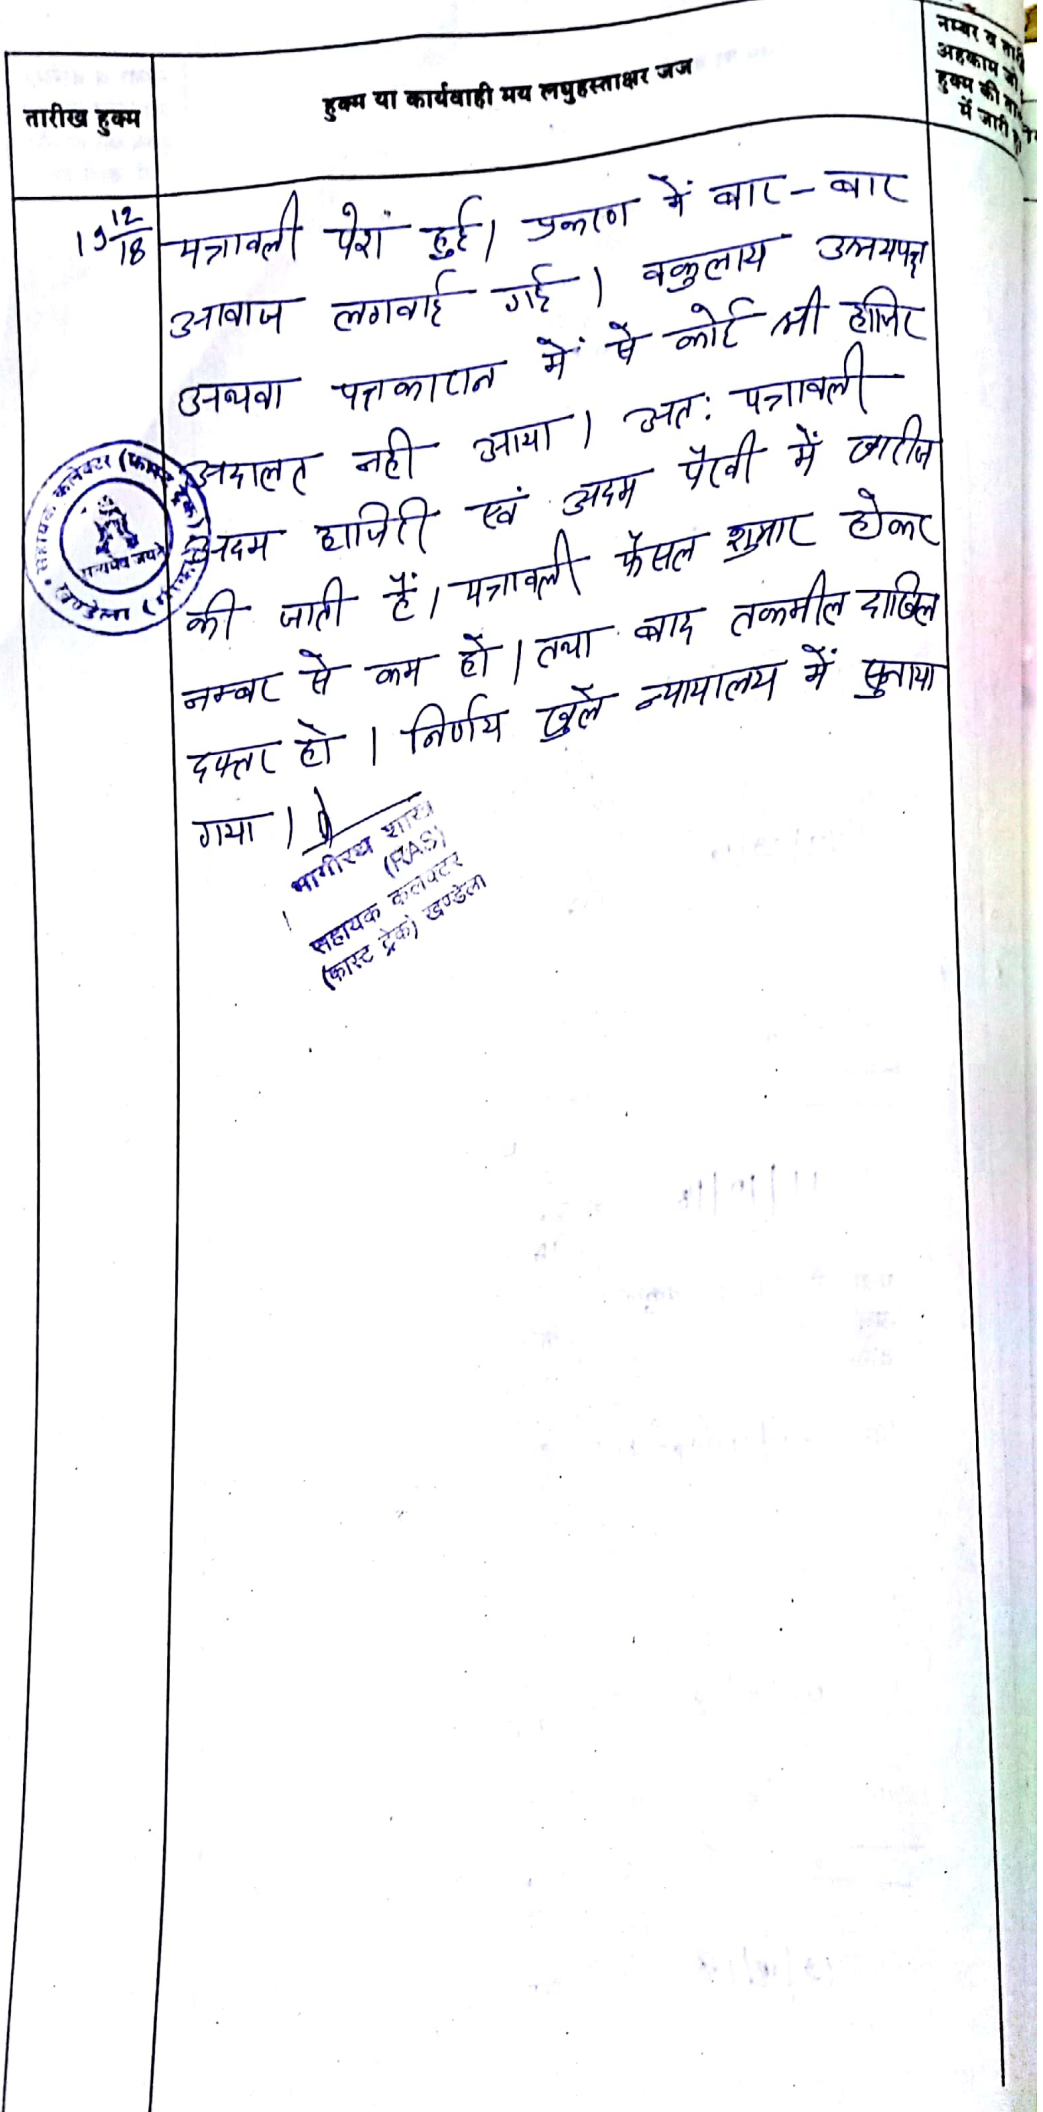 तारीख हुक्म
हुक्म या कार्यवाही मय लघुहस्ताक्षर जज
नम्बर व
अहकाम जो
हुक्म की
में जारी
19 12/18
पत्रावली पेश हुई। प्रकरण में बार-बार
आवाज लगवाई गई। वकुलाय उभयपक्ष
अथवा पक्षकारान में से कोई भी हाजिर
अदालत नही आया। अतः पत्रावली
अदम हाजिरी एवं अदम पैरवी में खारीज
की जाती हैं। पत्रावली फैसल शुमार होकर
नम्बर से कम हो। तथा बाद तकमील दाखिल
दफ्तर हो। निर्णय खुले न्यायालय में सुनाया
गया।
सहायक कलेक्टर (फास्ट ट्रेक)
सत्यमेव जयते
खण्डेला
भागीरथ शाख
(RAS)
सहायक कलक्टर
(फास्ट ट्रेक) खण्डेला